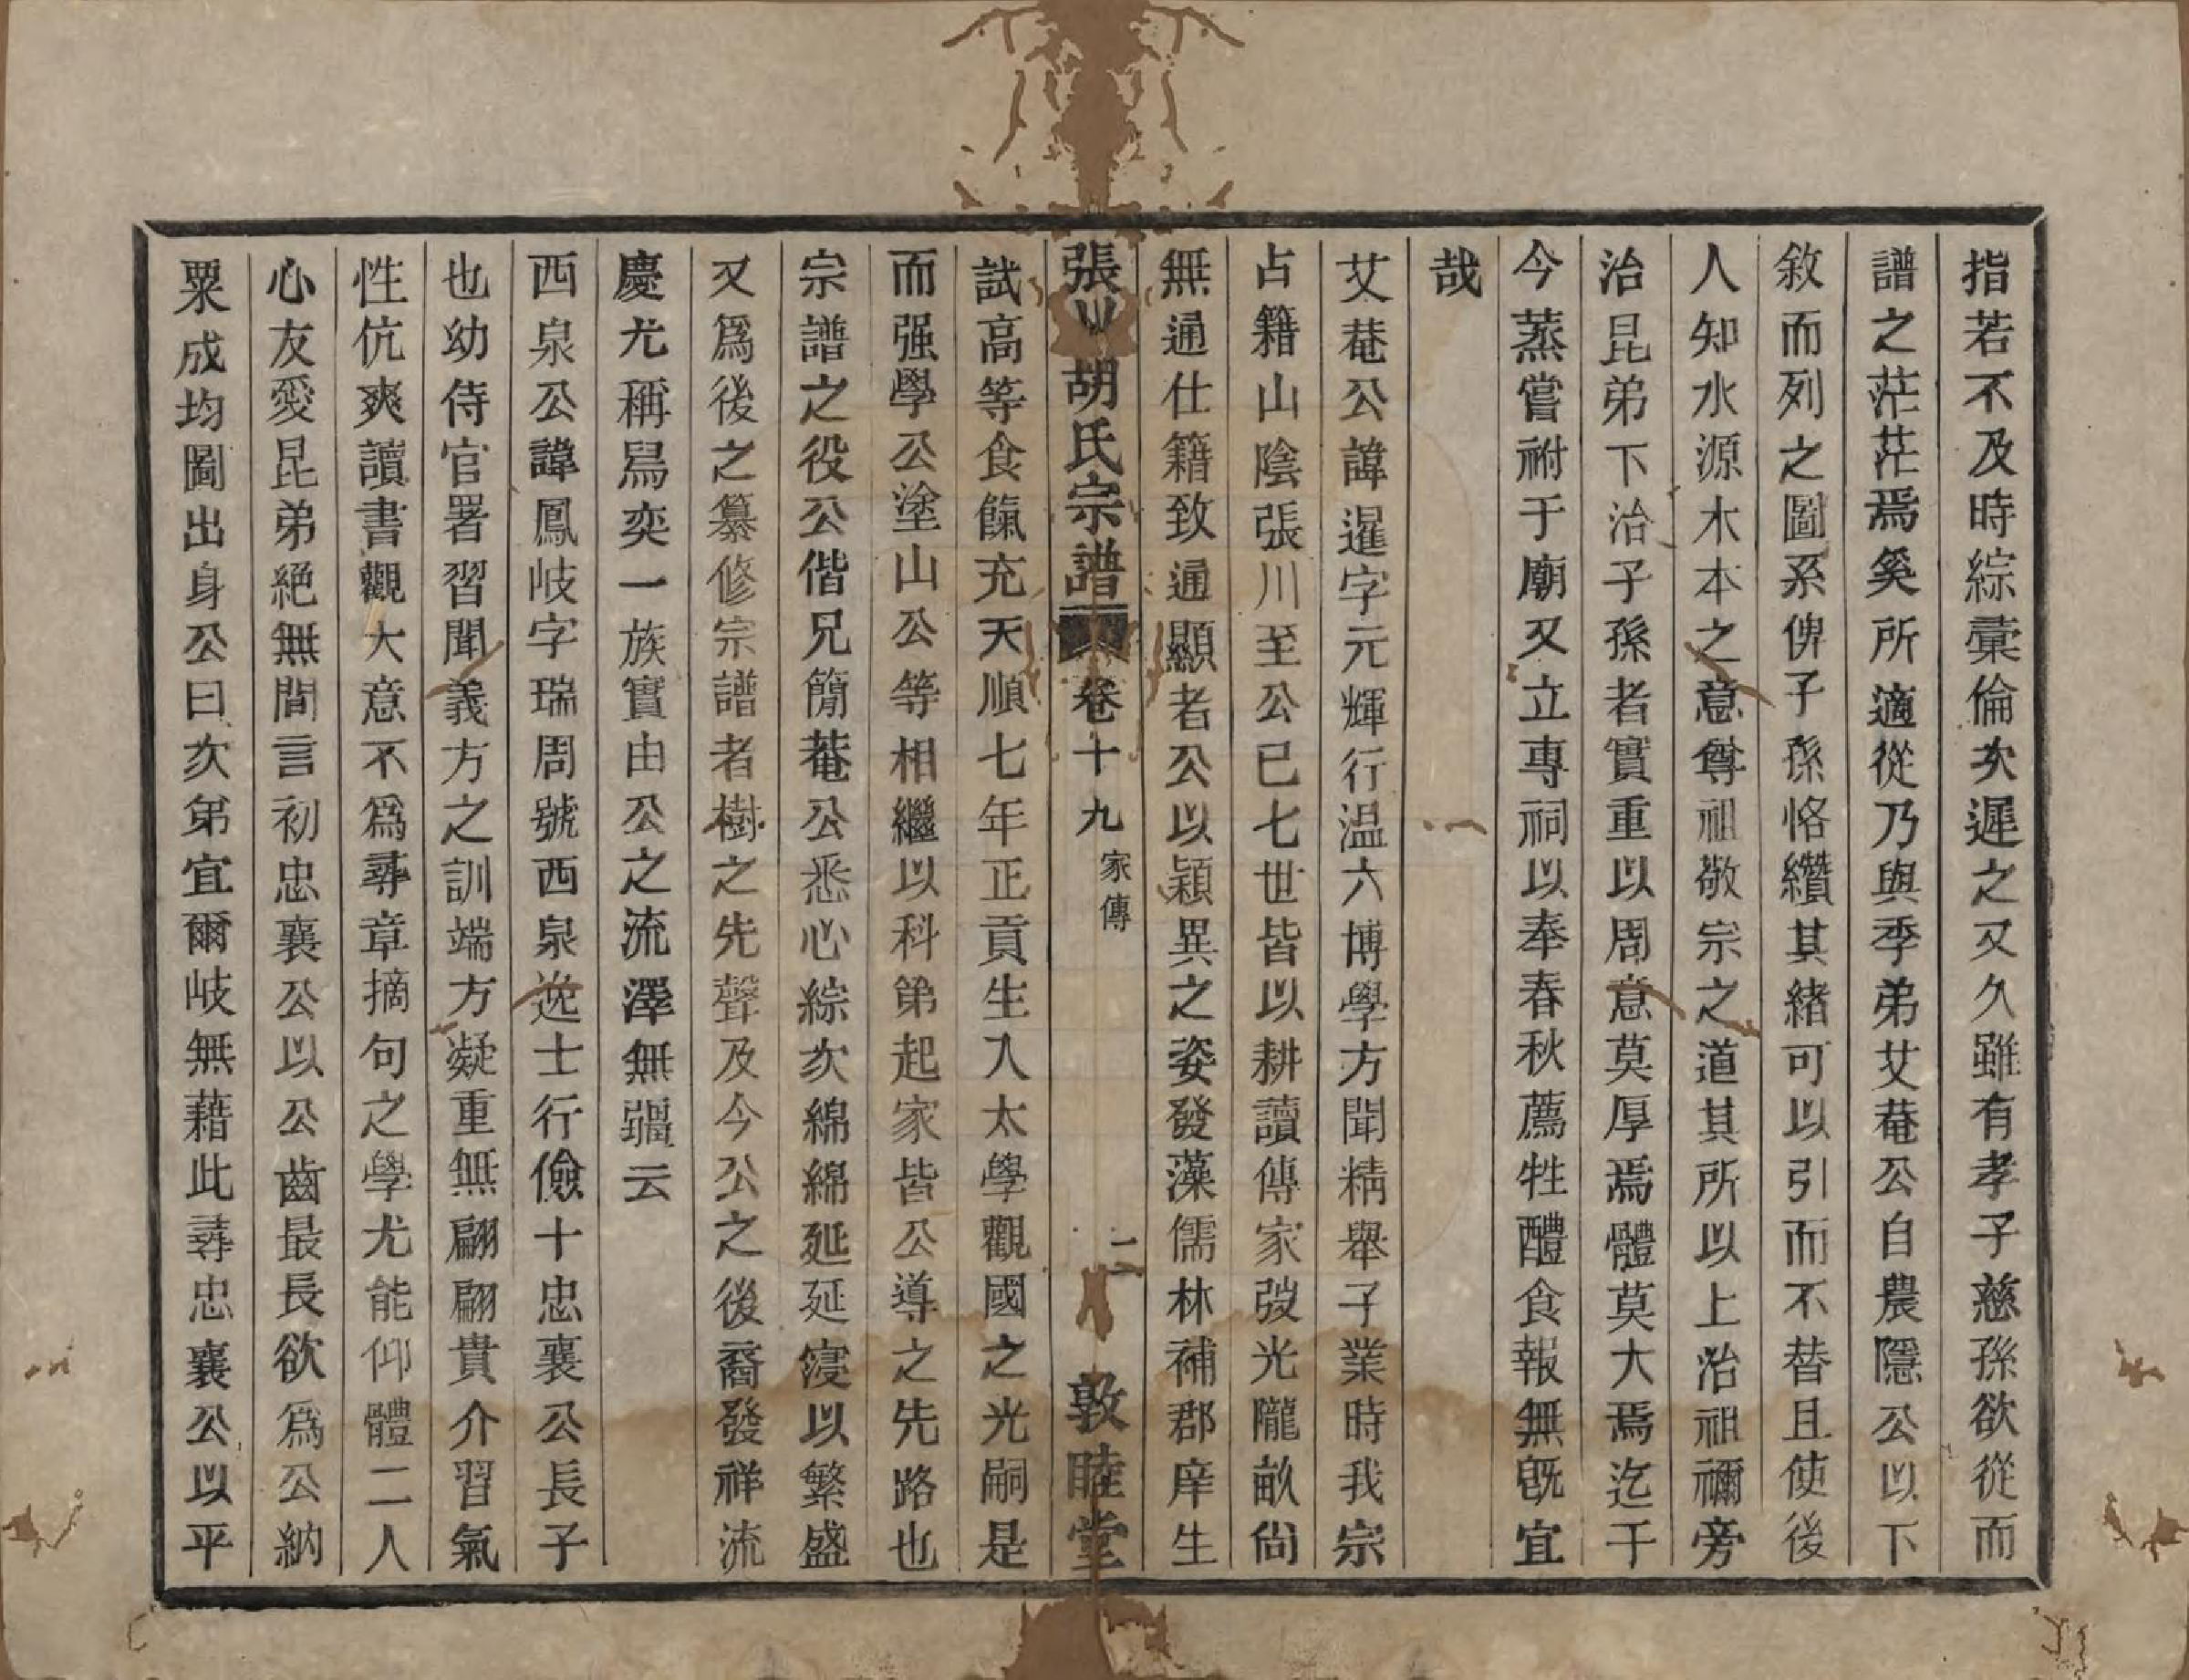 指若不及時綜彙倫次遲之又久雖有孝子慈孫欲從而
譜之茫茫焉奚所適從乃與季弟艾菴公自農隱公以下
敘而列之圖系俾子孫恪纘其緒可以引而不替且使後
人知水源木本之意尊祖敬宗之道其所以上治祖禰旁
治昆弟下治子孫者實重以周意莫厚焉體莫大焉迄于
今蒸嘗祔于廟又立專祠以奉春秋薦牲醴食報無旣宜
哉
艾菴公諱暹字元輝行温六博學方聞精舉子業時我宗
占籍山陰張川至公已七世皆以耕讀傳家弢光隴畝尙
無通仕籍致通顯者公以穎異之姿發藻儒林補郡庠生
張川胡氏宗譜 卷十九 家傳 二 敦睦堂
試高等食餼充天順七年正貢生入太學觀國之光嗣是
而强學公塗山公等相繼以科第起家皆公導之先路也
宗譜之役公偕兄簡菴公悉心綜次綿綿延延寖以繁盛
又爲後之纂修宗譜者樹之先聲及今公之後裔發祥流
慶尤稱舄奕一族實由公之流澤無疆云
西泉公諱鳳岐字瑞周號西泉逸士行儉十忠襄公長子
也幼侍官署習聞義方之訓端方凝重無翩翩貴介習氣
性伉爽讀書觀大意不爲尋章摘句之學尤能仰體二人
心友愛昆弟絕無間言初忠襄公以公齒最長欲爲公納
粟成均圖出身公曰次第宜爾岐無藉此尋忠襄公以平